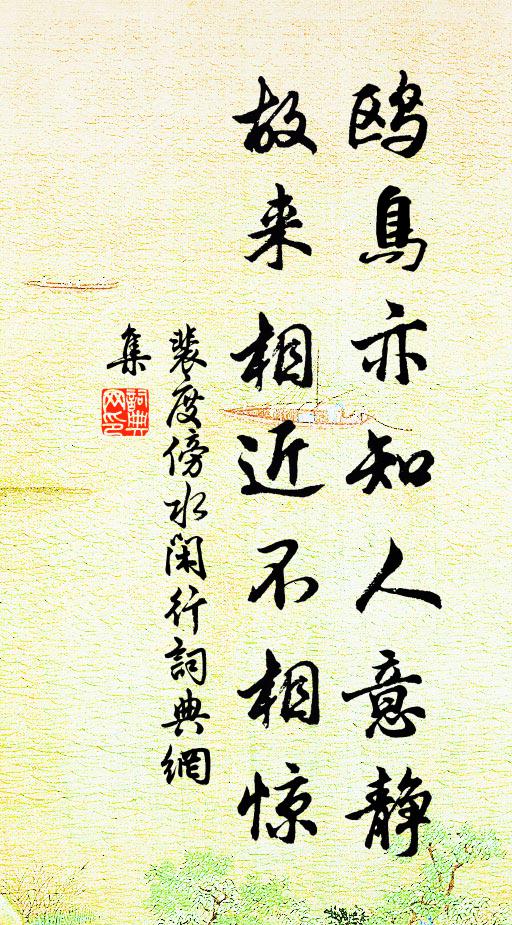 鸥鸟亦知人意静
故来相近不相惊
裴度傍水闲行詞典網
集
詞典
网印